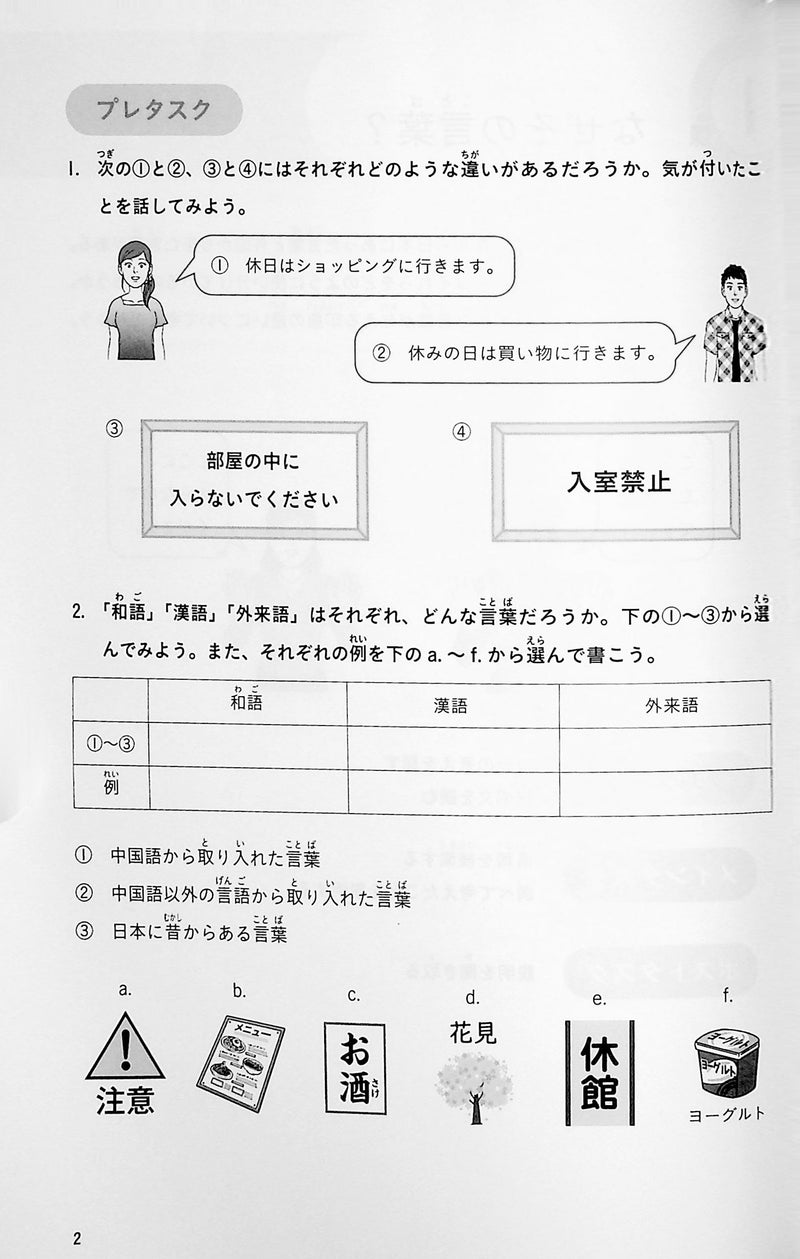 プレタスク
1. 次の①と②、③と④にはそれぞれどのような違いがあるだろうか。気が付いたこ
とを話してみよう。
① 休日はショッピングに行きます。
② 休みの日は買い物に行きます。
③
部屋の中に
入らないでください
④
入室禁止
2. 「和語」「漢語」「外来語」はそれぞれ、どんな言葉だろうか。下の①〜③から選
んでみよう。また、それぞれの例を下の a.〜 f. から選んで書こう。
和語 漢語 外来語
①〜③
例
① 中国語から取り入れた言葉
② 中国語以外の言語から取り入れた言葉
③ 日本に昔からある言葉
a. b. c. d. e. f.
注意
メニュー
お酒
花見
休館
ヨーグルト
ヨーグルト
ヨーグルト
2